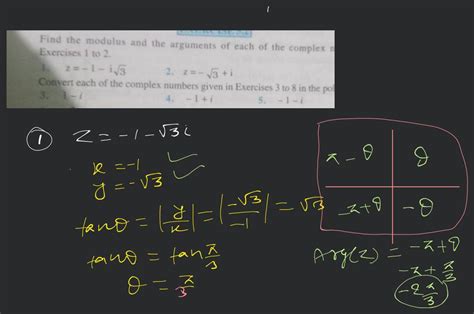 Find the modulus and the arguments of each of the complex n
Exercises 1 to 2.
1. z = – 1 – i√3 2. z = – √3 + i
Convert each of the complex numbers given in Exercises 3 to 8 in the pol
3. 1 – i 4. – 1 + i 5. – 1 – i
① z = -1 - √3 i
x = -1
y = -√3
tanθ = |y/x| = |-√3/-1| = √3
tanθ = tan π/3
θ = π/3
π - θ θ
-π + θ -θ
Arg(z) = -π + θ
-π + π/3
-2π/3